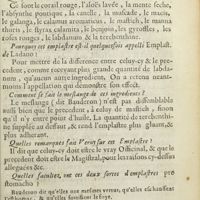 Ce sont le corail rouge, l'aloës lavée, la mente seche,
l'absynthe pontique, la canelle, la muscade, le macis,
le galanga, le calamus aromaticus, le mastich, le mauna
thuris, le styrax calamita, le benjoin, les gyrofles, les
roses rouges, le labdanum & la terebenthine.
Pourquoy cet emplastre est-il quelquesfois appellé Emplast.
de Ladano?
Pour mettre de la difference entre celuy-cy & le pre-
cedent, comme recevant plus grande quantité de labda-
num, qu'aucun autre ingredient. On a retenu nean-
moins l'appellation qui demonstre son effect.
Comment se fait le meslange de ces ingrediens?
Le meslange (dit Bauderon) n'est pas dissemblable
aussi bien que le precedent, sinon que l'on n'est point
contraint d'y mettre point d'huile. La quantité de terebenthi-
ne suppléc au deffaut, & rend l'emplastre plus gluant, &
plus adherant.
Quelles remarques fait Verny sur cet Emplastre?
Il dit que celuy-cy doit estre le vray Officinal, & que le
precedent doit estre le Magistral, pour les raisons cy-dessus
alleguées &c.
Quelles facultez ont ces deux sortes d'emplastres pro
stomacho?
Bauderon dit qu'elles ont mesmes vertus, qu'elles eschauffent
l'estomac, & qu'elles fortifient le foye,